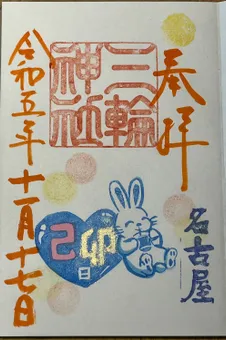 奉拝
三輪神社
名古屋
己卯
日
令和五年十一月十七日